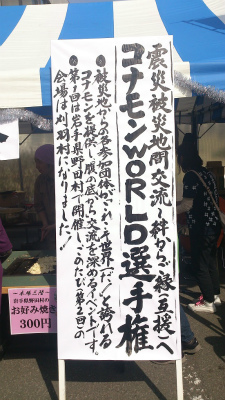 震災被災地間交流～絆から「縁」支援へ
コナモンWORLD選手権
●被災地からの各参加団体がこれぞ世界一だ！と誇れる
コナモンを提供し腹の底から交流を深めるイベントです。
●第1回は岩手県野田村で開催し、このたび第2回の
会場は刈羽村になりました！
岩手県野田村の
お好み焼き
300円